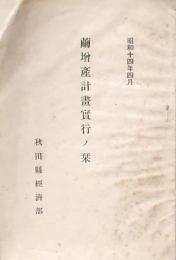 昭和十四年四月
繭增產計畫實行ノ栞
秋田縣經濟部